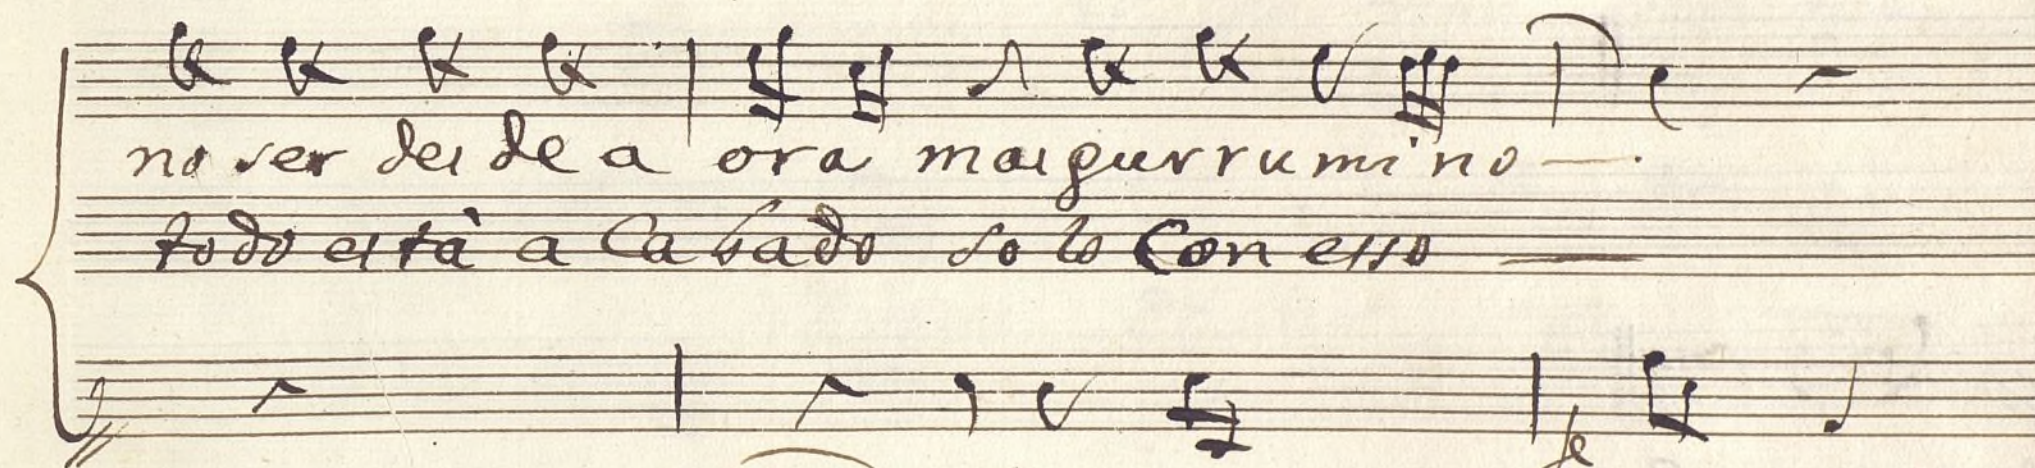 no ser desde a ora mas gurrumino
todo está acabado solo con esso